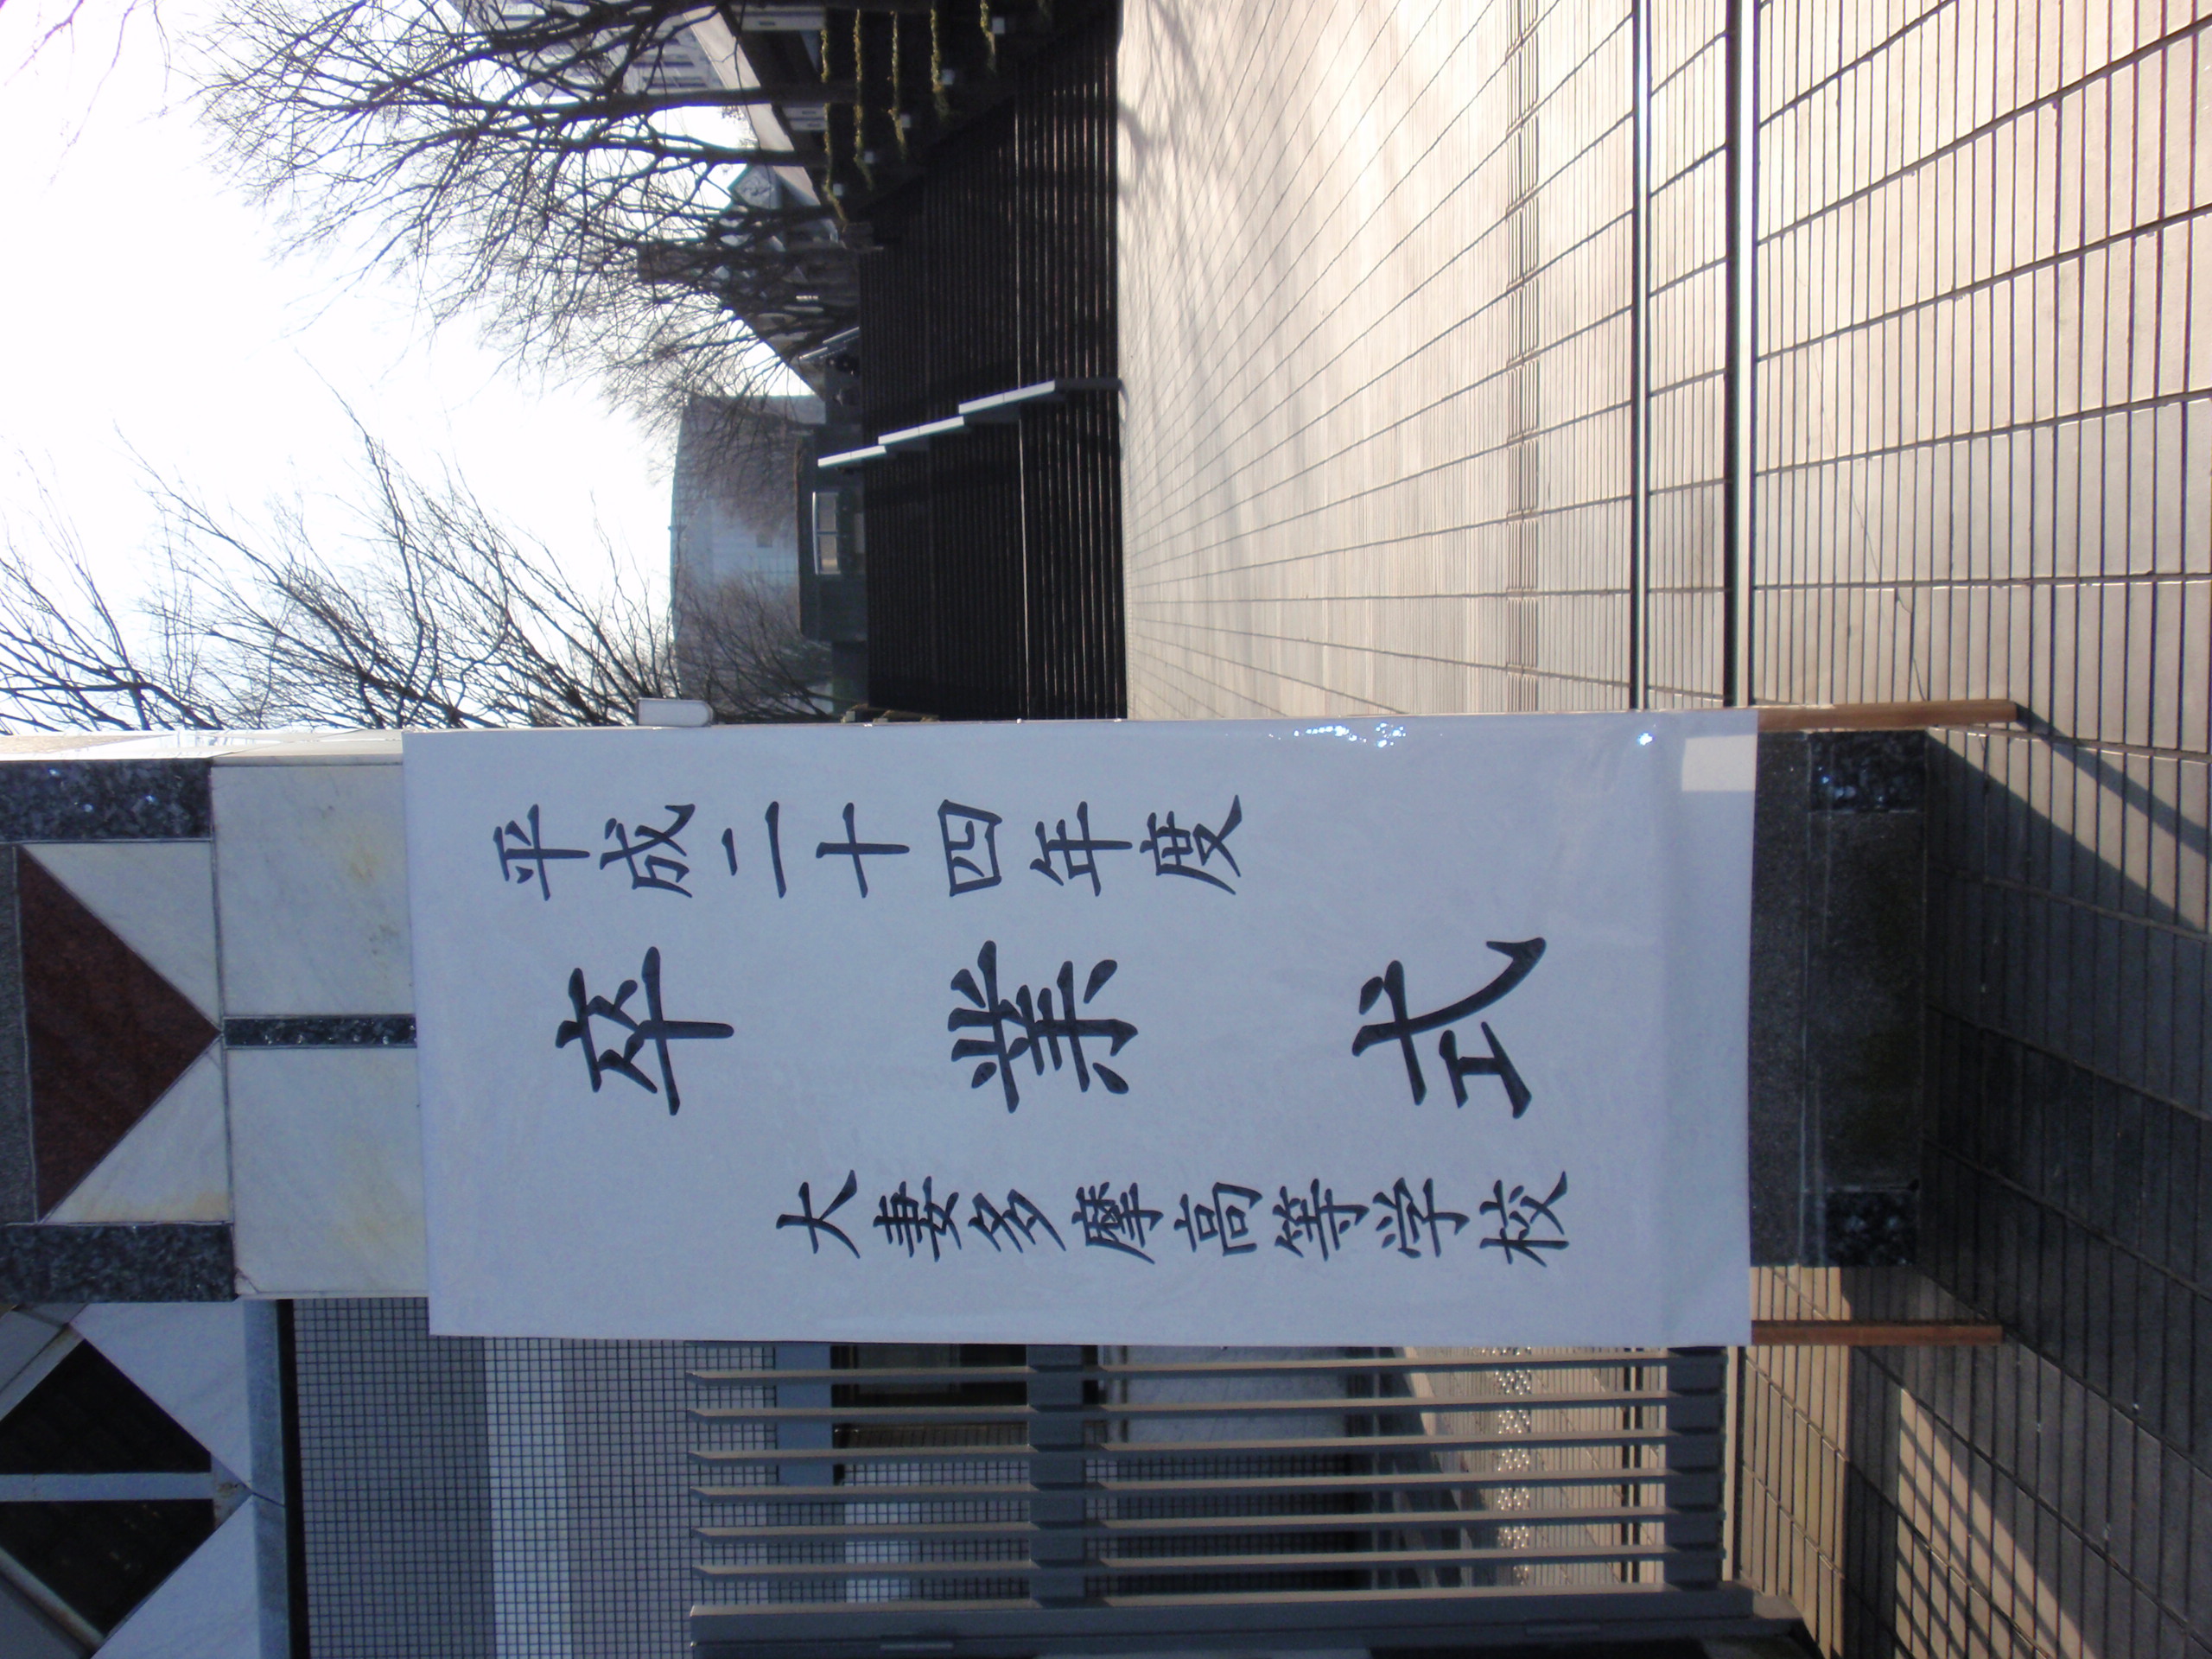 平成二十四年度
卒業式
大妻多摩高等学校